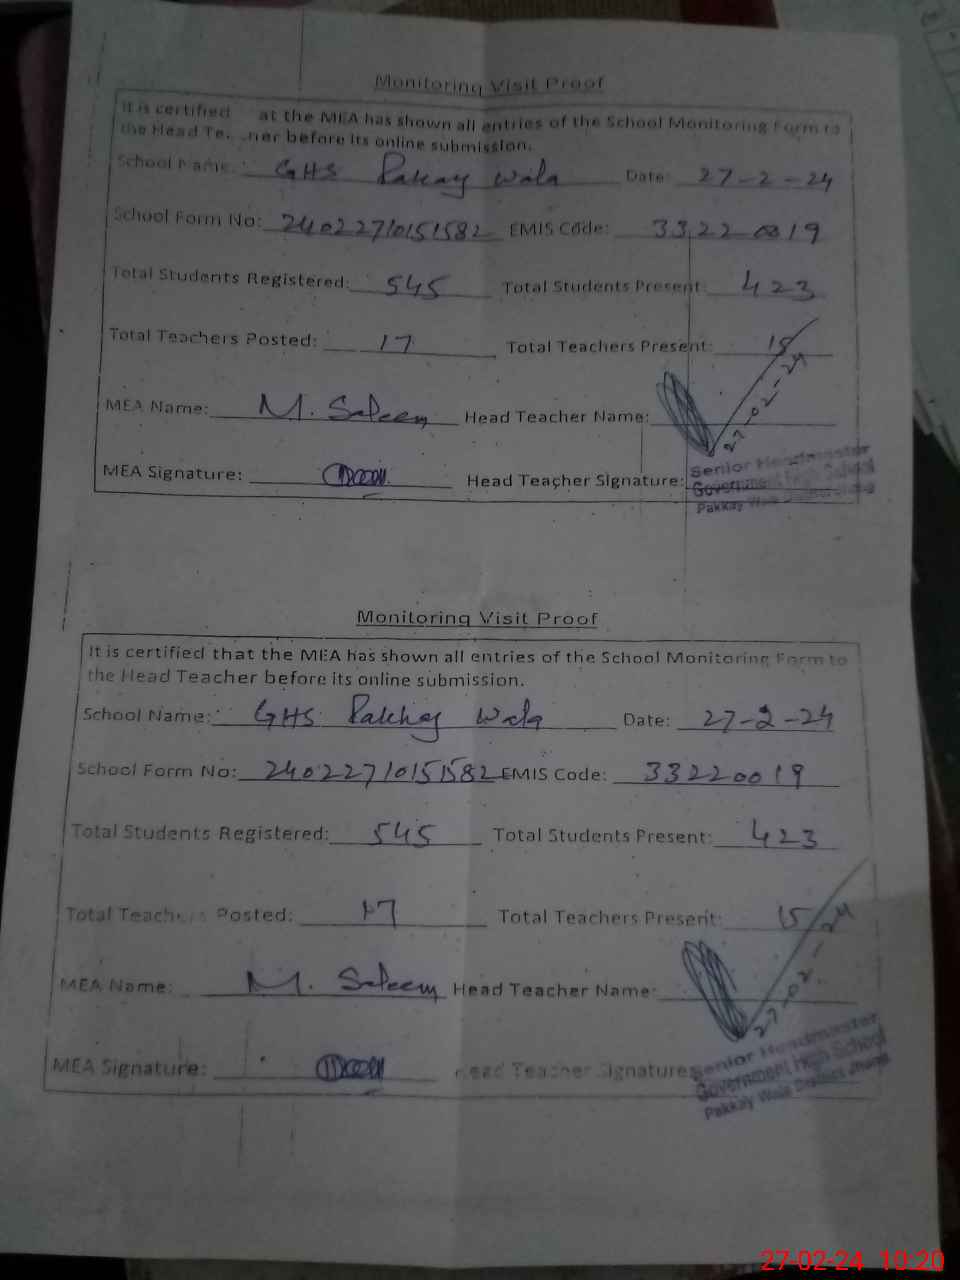 Monitoring Visit Proof
It is certified at the MEA has shown all entries of the School Monitoring Form to
the Head Te ner before its online submission.
School Name: GHS Pakkay Wala Date: 27-2-24
School Form No: 24022710151582 EMIS Code: 33220019
Total Students Registered: 545 Total Students Present: 423
Total Teachers Posted: 17 Total Teachers Present: 15
MEA Name: M. Saleem Head Teacher Name:
27-02-24
MEA Signature: Head Teacher Signature:
Senior Headmaster
Government High School
Pakkay Wala District Jhang
Monitoring Visit Proof
It is certified that the MEA has shown all entries of the School Monitoring Form to
the Head Teacher before its online submission.
School Name: GHS Pakkay Wala Date: 27-2-24
School Form No: 24022710151582 EMIS Code: 33220019
Total Students Registered: 545 Total Students Present: 423
Total Teachers Posted: 17 Total Teachers Present: 15
MEA Name: M. Saleem Head Teacher Name:
27-02-24
MEA Signature: Head Teacher Signature:
Senior Headmaster
Government High School
Pakkay Wala District Jhang
27-02-24 10:20